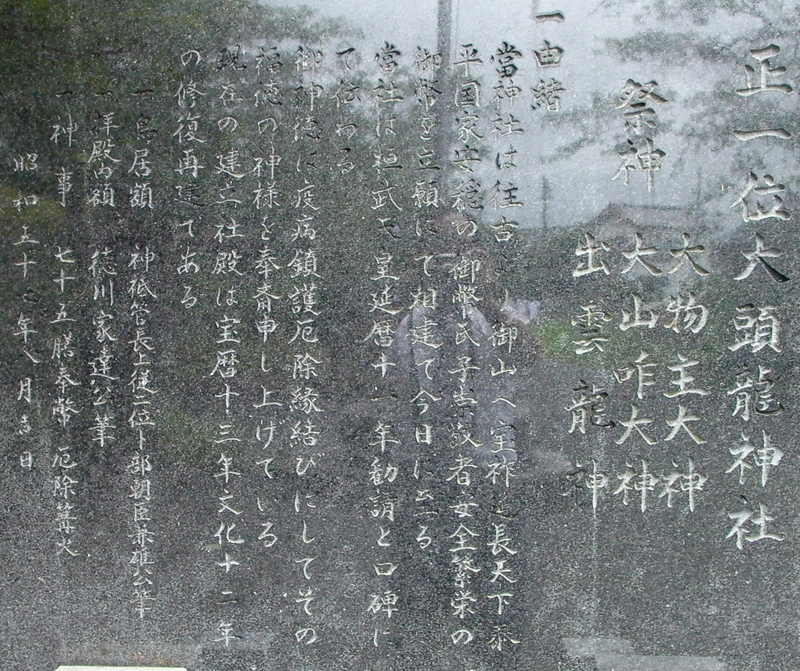 正一位大頭龍神社
祭神
大物主大神
大山咋大神
出雲龍神
一由緒
當神社は往古より御山へ宝祚延長天下泰
平国家安穏の御幣氏子崇敬者安全繁栄の
御幣を立願にて祖建て今日に至る
當社は桓武天皇延暦十一年勧請と口碑に
て伝わる
御神徳は疫病鎮護厄除縁結びにしてその
福徳の神様を奉斎申し上げている
現在の建立社殿は宝暦十三年文化十二年
の修復再建てある
一鳥居額 神祇管長上従二位卜部朝臣兼雄公筆
一拝殿内額 徳川家達公筆
一神事 七十五膳奉幣 厄除篝火
昭和五十 年 月吉日